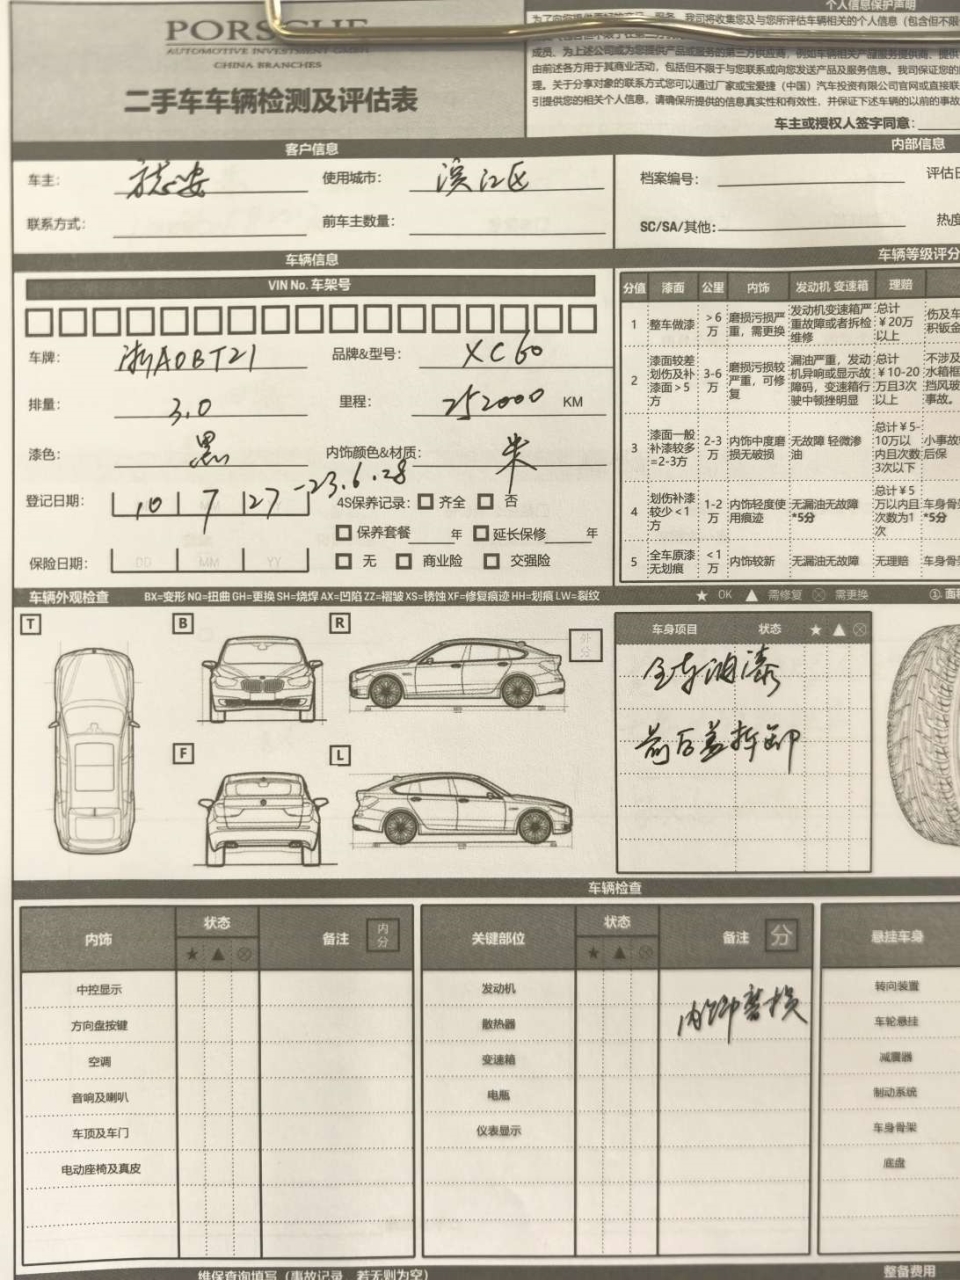 PORSCHE
AUTOMOTIVE INVESTMENT GMBH
CHINA BRANCHES
二手车车辆检测及评估表
个人信息保护声明
成员、为上述公司或为您提供产品或服务的第三方供应商，例如车辆相关产品服务提供商、提供
由前述各方用于其商业活动，包括但不限于与您联系或向您发送产品及服务信息。我司保证您的
理。关于分享对象的联系方式您可以通过厂家或宝爱捷（中国）汽车投资有限公司官网或直接联
引提供您的相关个人信息，请确保所提供的信息真实性和有效性，并保证下述车辆的以前的事故
车主或授权人签字同意：
客户信息
内部信息
车主：
使用城市： 滨江区
档案编号：
评估日
联系方式：
前车主数量：
SC/SA/其他：
热度
车辆信息
车辆等级评分
VIN No. 车架号
车牌： 浙A0BT21
品牌&型号： XC60
排量： 3.0
里程： 252000 KM
漆色： 黑
内饰颜色&材质： 米
登记日期： 10 7 27 -23.6.28
4S保养记录： 齐全 否
保养套餐 年 延长保修 年
保险日期： DD MM YY
无 商业险 交强险
分值 漆面 公里 内饰 发动机 变速箱 理赔
1 整车做漆 >6万 磨损污损严重，需更换 发动机变速箱严重故障或者拆检维修 总计￥20万以上 伤及车 积钣金
2 漆面较差划伤及补漆面>5方 3-6万 磨损污损较严重，可修复 漏油严重，发动机异响或显示故障码，变速箱行驶中顿挫明显 总计￥10-20万且3次以上 不涉及 水箱框 挡风玻 事故。
3 漆面一般补漆较多=2-3方 2-3万 内饰中度磨损无破损 无故障 轻微渗油 总计￥5-10万以内且次数3次以下 小事故 后保
4 划伤补漆较少<1方 1-2万 内饰轻度使用痕迹 无漏油无故障*5分 总计￥5万以内且次数为1次 车身骨 *5分
5 全车原漆无划痕 <1万 内饰较新 无漏油无故障 无理赔 车身骨
车辆外观检查 BX=变形 NQ=扭曲 GH=更换 SH=烧焊 AX=凹陷 ZZ=褶皱 XS=锈蚀 XF=修复痕迹 HH=划痕 LW=裂纹 ★ OK ▲ 需修复 ⊗ 需更换
T
B
R
外分
F
L
车身项目 状态 ★ ▲ ⊗
全车油漆
前后盖拆卸
车辆检查
内饰 状态 ★ ▲ ⊗ 备注 内分
中控显示
方向盘按键
空调
音响及喇叭
车顶及车门
电动座椅及真皮
关键部位 状态 ★ ▲ ⊗ 备注 分
发动机
内饰磨损
散热器
变速箱
电瓶
仪表显示
悬挂车身
转向装置
车轮悬挂
减震器
制动系统
车身骨架
底盘
维保查询填写（事故记录，若无则为空）
整备费用